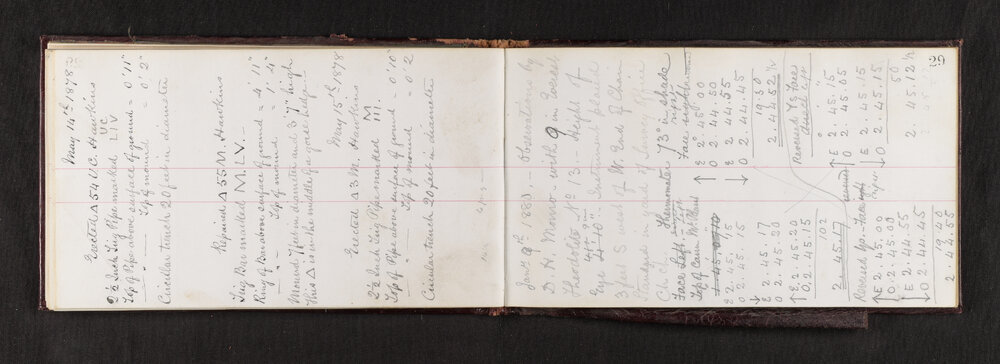 May 14th 1878
Erected Δ 54 U.C. Hawkins
2½ Inch Ing Pipe marked UC LIV
Top of Pipe above surface of ground = 0' 11"
" " Top of mound = 0' 2"
Circular trench 20 feet in diameter
Repaired Δ 55 M. Hawkins
Ing Bar marked M. LV.
Ring of Bar above surface of ground = 4' 11"
" " Top of mound = 1' 4"
Mound 7 feet in diameter and 3' 7" high
This Δ is in the middle of a gorse hedge
May 15th 1878
Erected Δ 3 M. Hawkins
2½ Inch Ing Pipe marked M III.
Top of Pipe above surface of ground = 0' 10"
" " Top of mound = 0' 2
Circular trench 20 feet in diameter
29
1883 – Observations by
D. H. Monro – with 9 in
Theodolite No 13 – Height of
Eye Instrument placed
3 feet S West of W. End of Chain
Standard in yard of Survey Office
Ch. Ch. Thermometer 73° in shade
Face Left
Top of Cairn
E 2. 45. 17
O 2. 45. 20
E 2. 45. 20
O. 2. 45. 15
102
2 45.17
E 2. 45. 00
O 2. 44. 55
E 2. 44. 55
O 2. 44. 45
19.50
2. 44. 52½
Reversed Ys Face
E 2. 45. 15
O 2. 45. 05
E 2. 45. 15
O 2. 45. 15
50
2. 45. 12½
Reversed
E 2. 45. 00
O 2. 44. 55
E 2. 44. 55
O 2. 44. 45
19 40
2 44. 55